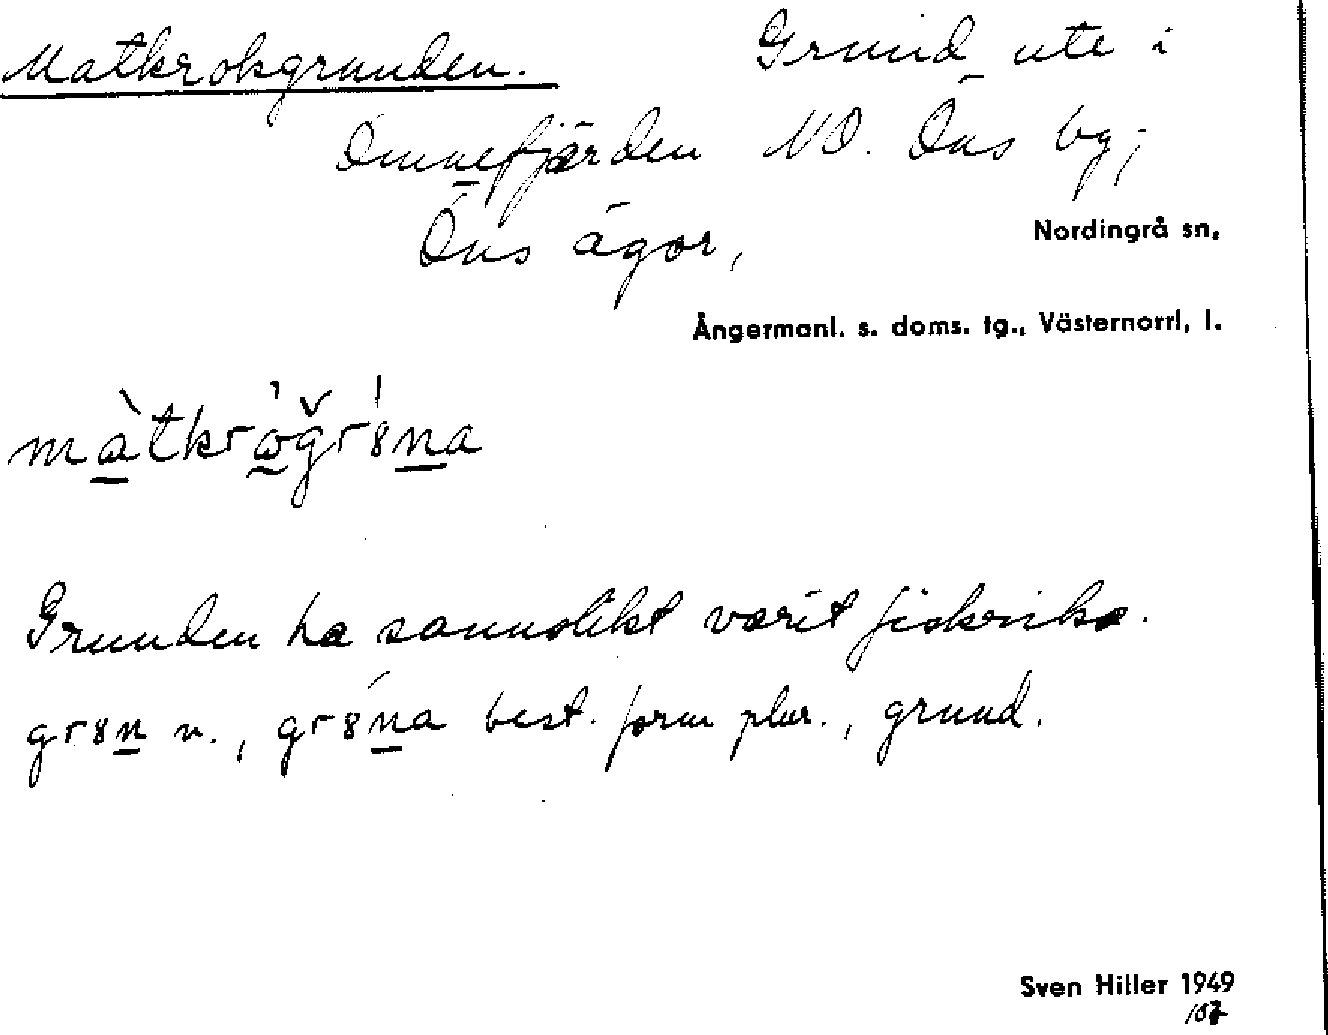 Matkrokgrunden. Grund ute i
Omnefjärden NO. Öns by;
Öns ägor,
Nordingrå sn,
Ångermanl. s. doms. tg., Västernorrl, l.
Grunden ha sannolikt varit fiskrika.
n., best. form plur., grund.
Sven Hiller 1949